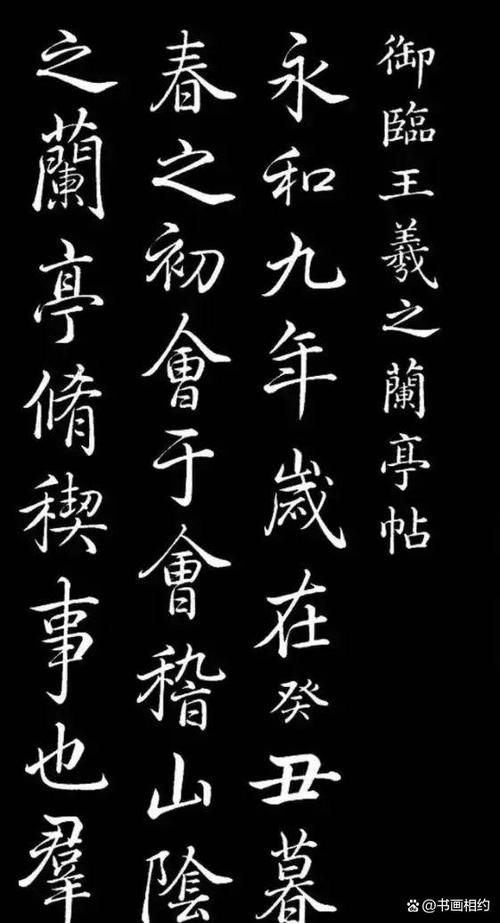 御臨王羲之蘭亭帖
永和九年歲在癸丑暮
春之初會于會稽山陰
之蘭亭脩稧事也羣
@书画相约